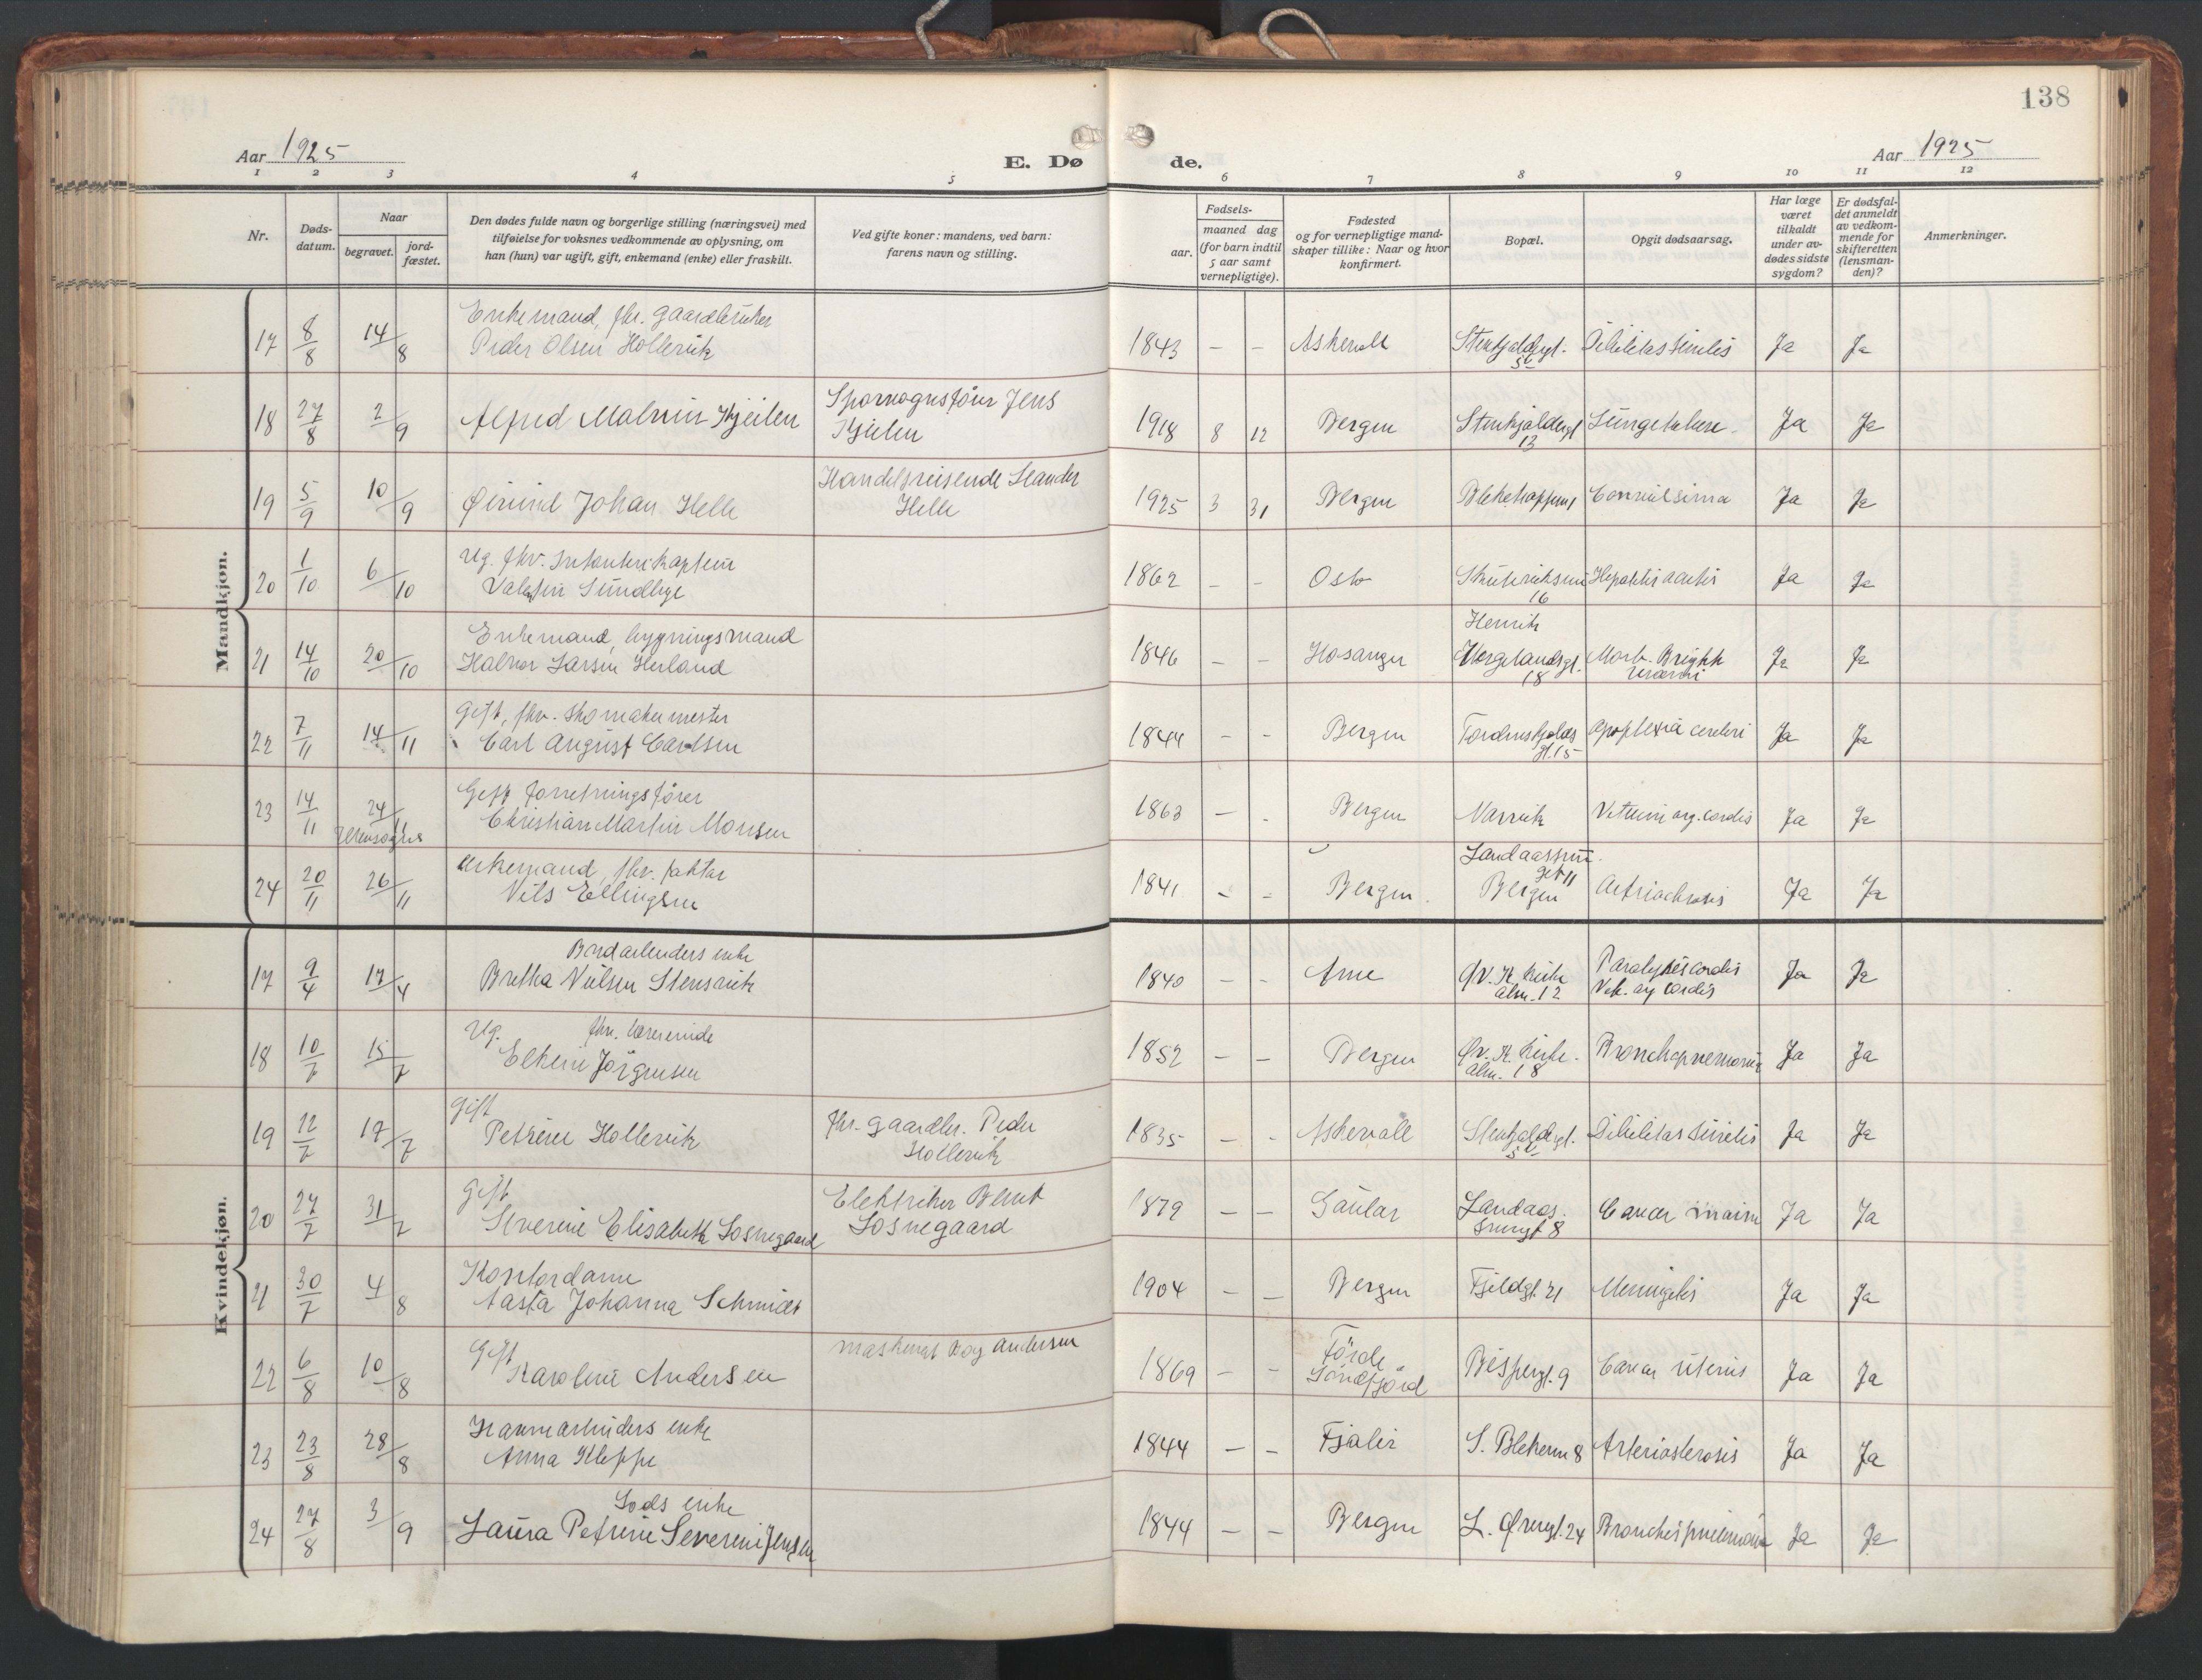 138
Aar 1925
E. Dø
de.
Aar 1925
1 2 3 4 5 6 7 8 9 10 11 12
Nr.
Døds-
datum.
Naar
begravet.
jord-
fæstet.
Den dødes fulde navn og borgerlige stilling (næringsvei) med
tilføielse for voksnes vedkommende av oplysning, om
han (hun) var ugift, gift, enkemand (enke) eller fraskilt.
Ved gifte koner: mandens, ved barn:
farens navn og stilling.
Fødsels-
aar.
maaned dag
(for barn indtil
5 aar samt
vernepligtige).
Fødested
og for vernepligtige mand-
skaper tillike: Naar og hvor
konfirmert.
Bopæl.
Opgit dødsaarsag.
Har læge
været
tilkaldt
under av-
dødes sidste
sygdom?
Er dødsfal-
det anmeldt
av vedkom-
mende for
skifteretten
(lensman-
den)?
Anmerkninger.
Mandkjøn.
Enkemand, fhv. gaardbruker
17 8/8 14/8 Peder Olsen Hollevik 1843 - - Askevoll Ja Ja
Sporvognsfører Jens
18 27/8 2/9 Alfred Malvin Kjeilen Kjeilen 1918 8 12 Bergen 13 Ja Ja
Handelsreisende Leander
19 5/9 10/9 Øivind Johan Helle Helle 1925 3 31 Bergen Ja Ja
Ug. fhv. Infanterikaptein
20 1/10 6/10 Valentin Sundbye 1862 - - Oslo 16 Hepatitis acutis Ja Ja
Enkemand, bygningsmand Henrik
21 14/10 20/10 Halvor Larsen Herland 1846 - - Hosanger Wergelandsgt. 18 Morb. Brighti Ja Ja
Gift, fhv. skomakermester
22 7/11 14/11 Carl August Carlsen 1844 - - Bergen Tordenskjolds gt. 15 Apoplexia cerebri Ja Ja
Gift forretningsfører
23 14/11 24/11 Christian Martin Monsen 1863 - - Bergen Narvik Vitium org. cordis Ja Ja
enkemand, fhv. faktor
24 20/11 26/11 Nils Ellingsen 1841 - - Bergen Bergen Ja Ja
Kvindekjøn.
enke
17 9/4 17/4 Bretha Nielsen Stensvik 1840 - - Arne alm. 12 Paralysis cordis Ja Ja
Ug. fhv. lærerinde
18 10/7 15/7 Jørgensen 1852 - - Bergen alm. 18 Ja Ja
Gift
19 12/7 17/7 Petrine Hollevik fhv. gaardbr. Peder Hollevik 1835 - - Askevoll Debilitas senilis Ja Ja
Gift Elektriker Bernt
20 27/7 31/7 Severine Elisabeth Sosnegaard Sosnegaard 1879 - - Gaular Landaas- 8 Cancer Ja Ja
Kontordame
21 30/7 4/8 Aasta Johanna Schmidt 1904 - - Bergen Fjeldgt. 21 Meningitis Ja Ja
Gift Andersen
22 6/8 10/8 Karoline Andersen 1869 - - Förde Söndfjord Bispengt. 9 Cancer uterus Ja Ja
enke
23 23/8 28/8 Anna Kleppe 1844 - - Fjaler 8 Arteriosclerosis Ja Ja
Lods enke
24 27/8 3/9 Laura Petrine Severine Jensen 1844 - - Bergen L. Øvregt. 24 Ja Ja